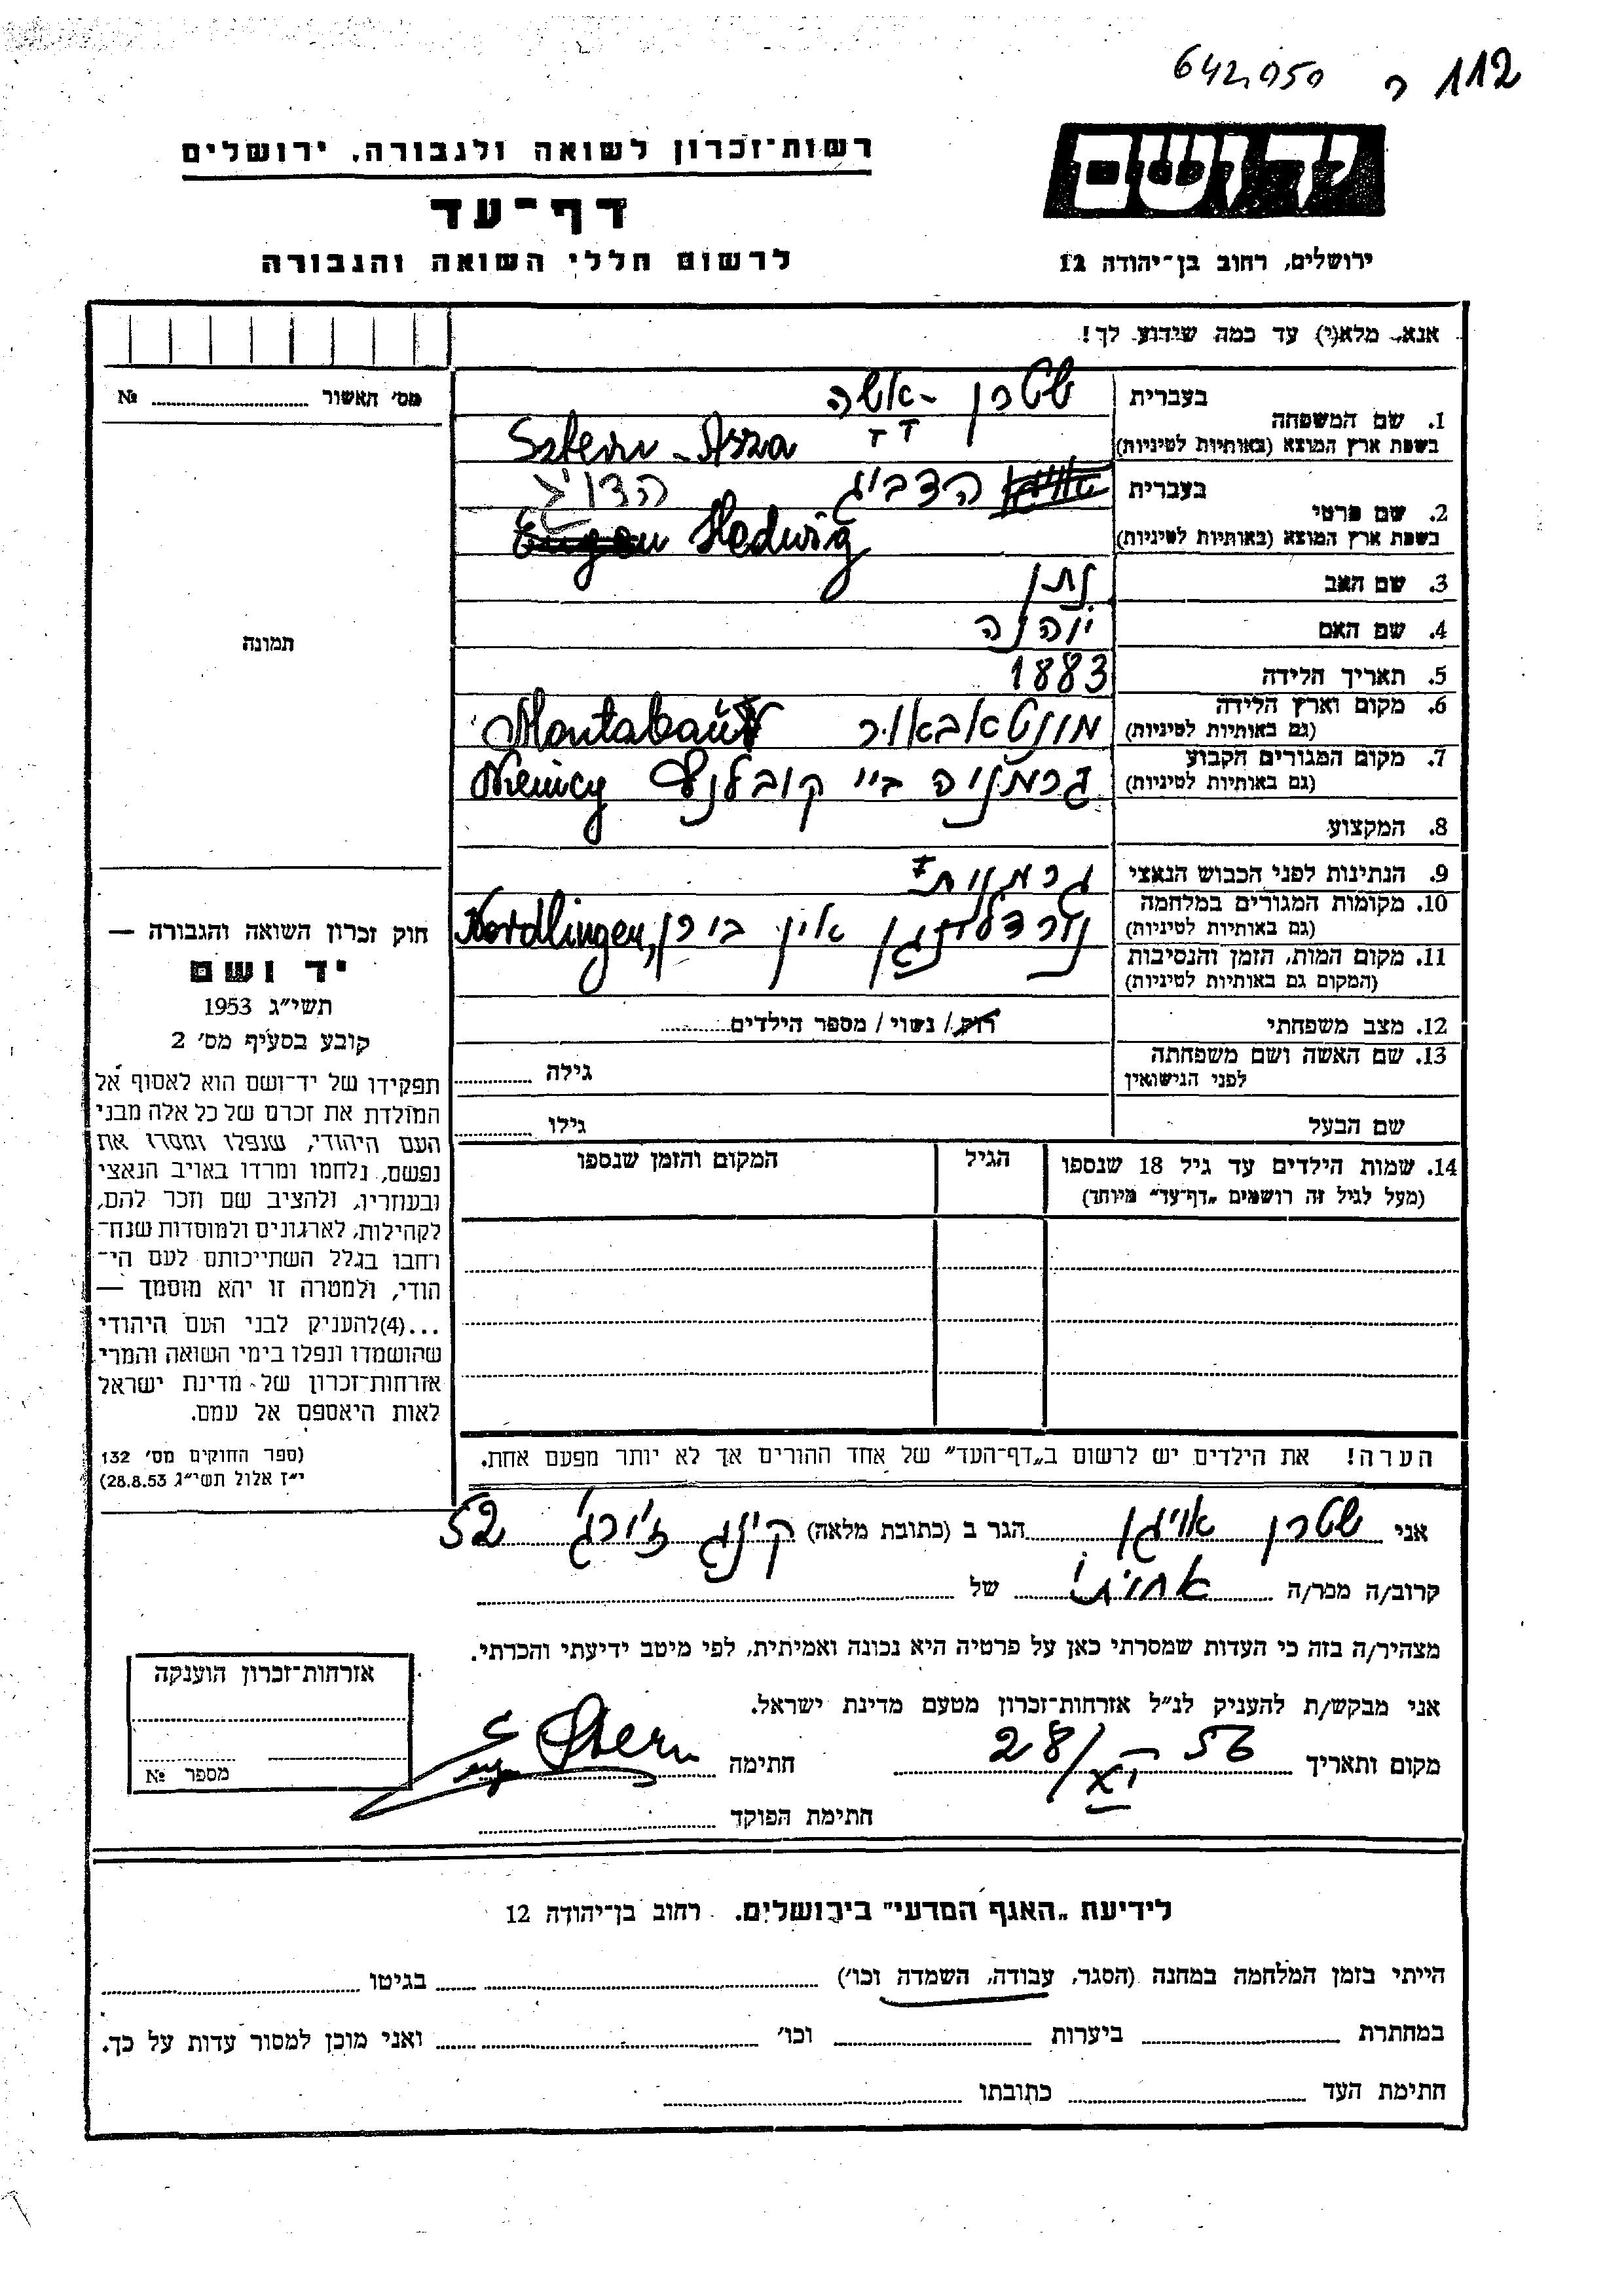 642,050 ר 112
יד ושם
רשות־זכרון לשואה ולגבורה, ירושלים
דף־עד
לרשום חללי השואה והגבורה
ירושלים, רחוב בן־יהודה 12
אנא, מלא(י) עד כמה שידוע לך!
מס׳ האשור № 
1. שם המשפחה
בעברית שטרן - אשה
בשפת ארץ המוצא (באותיות לטיניות) Sztern - Assa
2. שם פרטי
בעברית הדביג הדויג
בשפת ארץ המוצא (באותיות לטיניות) Eugen Hedwig
3. שם האב נתן
4. שם האם יוהנה
5. תאריך הלידה 1883
6. מקום וארץ הלידה
(גם באותיות לטיניות) מונטאבאור Montabaur
7. מקום המגורים הקבוע
(גם באותיות לטיניות) גרמניה ביי קובלנץ Niemcy
8. המקצוע
9. הנתינות לפני הכבוש הנאצי גרמנית
10. מקומות המגורים במלחמה
(גם באותיות לטיניות) נורדלינגן אין Nordlingen,
11. מקום המות, הזמן והנסיבות
(המקום גם באותיות לטיניות)
12. מצב משפחתי רוק / נשוי / מספר הילדים
13. שם האשה ושם משפחתה
לפני הנישואין גילה
שם הבעל גילו
14. שמות הילדים עד גיל 18 שנספו
(מעל לגיל זה רושמים „דף־עד״ מיוחד)
הגיל
המקום והזמן שנספו
הערה! את הילדים יש לרשום ב„דף־העד״ של אחד ההורים אך לא יותר מפעם אחת.
תמונה
חוק זכרון השואה והגבורה —
יד ושם
תשי״ג 1953
קובע בסעיף מס׳ 2
תפקידו של יד־ושם הוא לאסוף אל
המולדת את זכרם של כל אלה מבני
העם היהודי, שנפלו ומסרו את
נפשם, נלחמו ומרדו באויב הנאצי
ובעוזריו, ולהציב שם וזכר להם,
לקהילות, לארגונים ולמוסדות שנח־
רחבו בגלל השתייכותם לעם הי־
הודי, ולמטרה זו יהא מוסמך —
...(4)להעניק לבני העם היהודי
שהושמדו ונפלו בימי השואה והמרי
אזרחות־זכרון של מדינת ישראל
לאות היאספם אל עמם.
(ספר החוקים מס׳ 132
י״ז אלול תשי״ג 28.8.53)
אני שטרן אויגן הגר ב (כתובת מלאה) קינג ג׳ורג׳ 52
קרוב/ה מכר/ה אחותי של
מצהיר/ה בזה כי העדות שמסרתי כאן על פרטיה היא נכונה ואמיתית, לפי מיטב ידיעתי והכרתי.
אני מבקש/ת להעניק לנ״ל אזרחות־זכרון מטעם מדינת ישראל.
מקום ותאריך 28/XI 56 חתימה Stern
חתימת הפוקד
אזרחות־זכרון הוענקה
מספר №
לידיעת „האגף המדעי״ בירושלים. רחוב בן־יהודה 12
הייתי בזמן המלחמה במחנה (הסגר, עבודה, השמדה וכו׳) בגיטו
במחתרת ביערות וכו׳ ואני מוכן למסור עדות על כך.
חתימת העד כתובתו